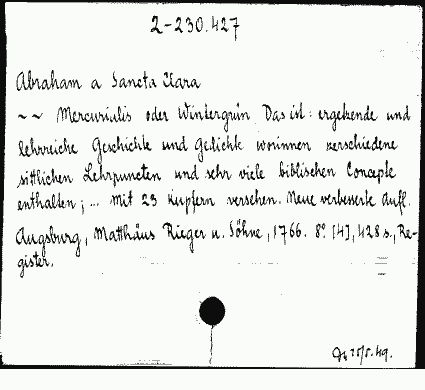 2-230.427
Abraham a Sancta Clara
~~ Mercurialis oder Wintergrün Das ist: ergetzende und
lehrreiche Geschichte und Gedichte worinnen verschiedene
sittlichen Lehrpuncten und sehr viele biblischen Concepte
enthalten; ... Mit 23 Kupfern versehen. Neue verbesserte Aufl.
Augsburg, Matthäus Rieger u. Söhne, 1766. 8° [4], 428 s., Re-
gister.
49.